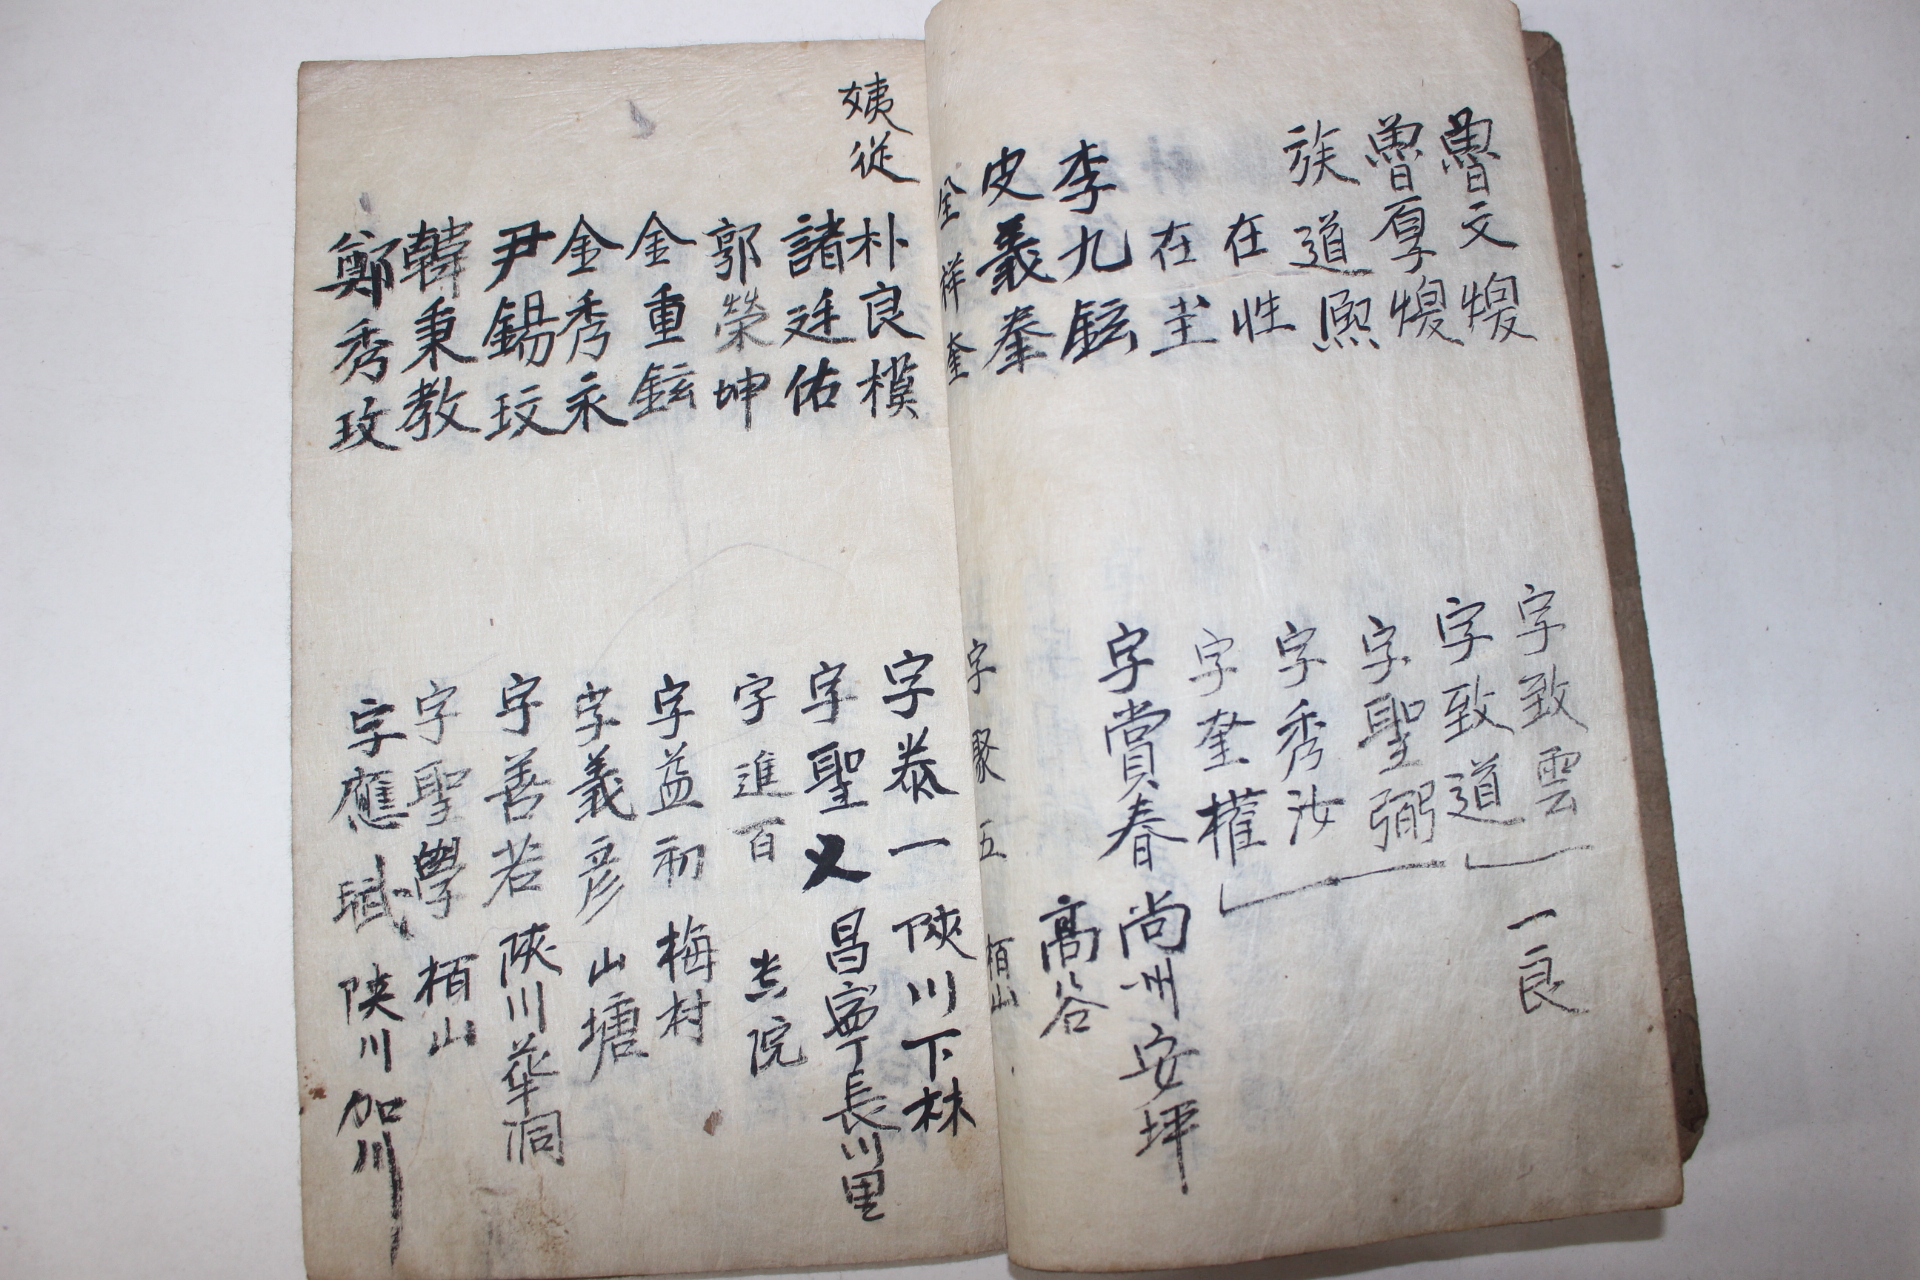 魯文煚 字致雲
魯厚煚 字致道 一良
族 道熈 字聖弼
在性 字秀汝
在𡊮 字奎權
李九鉉 字賞春 尚州安坪
皮義奉 高谷
金祥奎 字聚五 栢山
姨從 朴良模 字泰一 陜川下林
諸廷佑 字聖又 昌寧長川里
郭榮坤 字進百 院
金重鉉 字益初 梅村
金秀永 字義彦 山塘
尹錫玟 字善若 陜川華洞
韓秉教 字聖學 栢山
鄭秀玫 字應斌 陜川加川